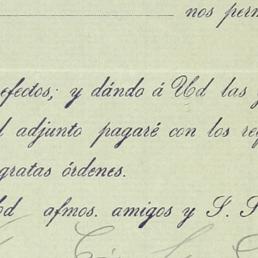 nos perm
efectos; y dándo á Ud las
adjunto pagaré con los
gratas órdenes.
afmos. amigos y S. S